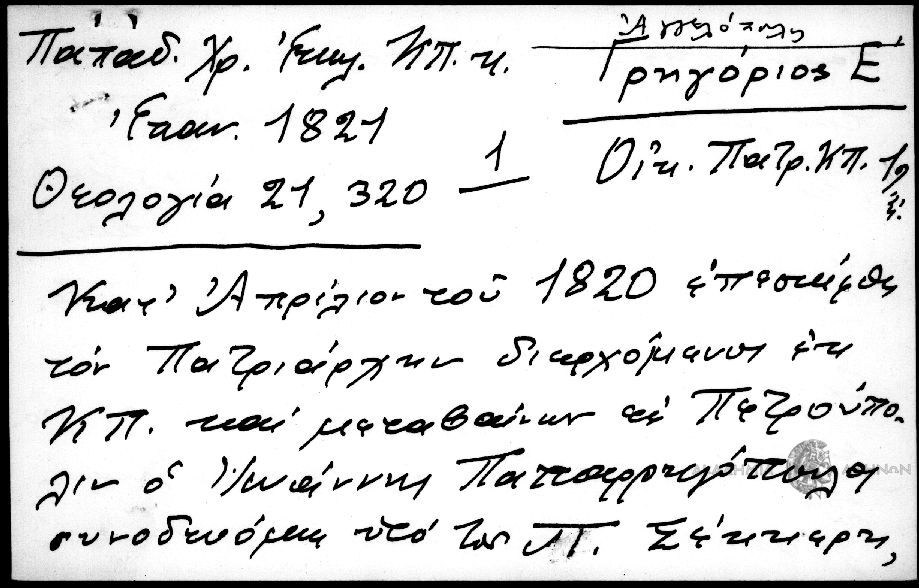 Παπαδ. Χρ. Ἐκκλ. ΚΠ. κ.
Ἐπαν. 1821
Θεολογία 21, 320
1
Ἀγγελόπουλος
Γρηγόριος Ε
Οἰκ. Πατρ. ΚΠ.
Κατ' Ἀπρίλιον τοῦ 1820 ἐπεσκέφθη
τόν Πατριάρχην διερχόμενος ἐκ
ΚΠ. καί μεταβαίνων εἰς Πετρούπο-
λιν ὁ Ἰωάννης Παπαρρηγόπουλος
συνοδευόμενος ὑπό τοῦ Π. Σέκκερη,